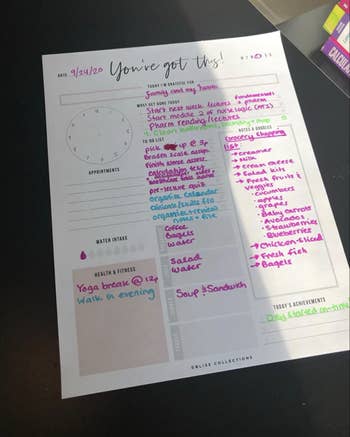 You've got this!
DATE 9/24/20
M T W T F S S
TODAY I'M GRATEFUL FOR
Family and my health
MUST GET DONE TODAY
Start next week lectures → pharm
fundamentals
Start module 2 of nurse logic (ATI)
Pharm reading/lectures
TO DO LIST
pick up @ 3p
Braden scale assign.
finish store assess.
calculation test
pre-lecture quiz
organize calendar
clinicals/skills fri
organize + review
notes + etc
APPOINTMENTS
WATER INTAKE
Coffee
Bagels
water
Salad
water
Soup & Sandwich
HEALTH & FITNESS
Yoga break @ 12p
Walk in evening
NOTES & DOODLES
Grocery shopping
list
→ creamer
→ milk
→ cream cheese
→ Salad kits
→ Fresh fruit &
veggies
• cucumbers
• apples
• grapes
• Baby carrots
• Avocados
• Strawberries
• Blueberries
→ Chicken-sliced
→ Fresh fish
→ Bagels
TODAY'S ACHIEVEMENTS
Day started on-time
BLISS COLLECTIONS